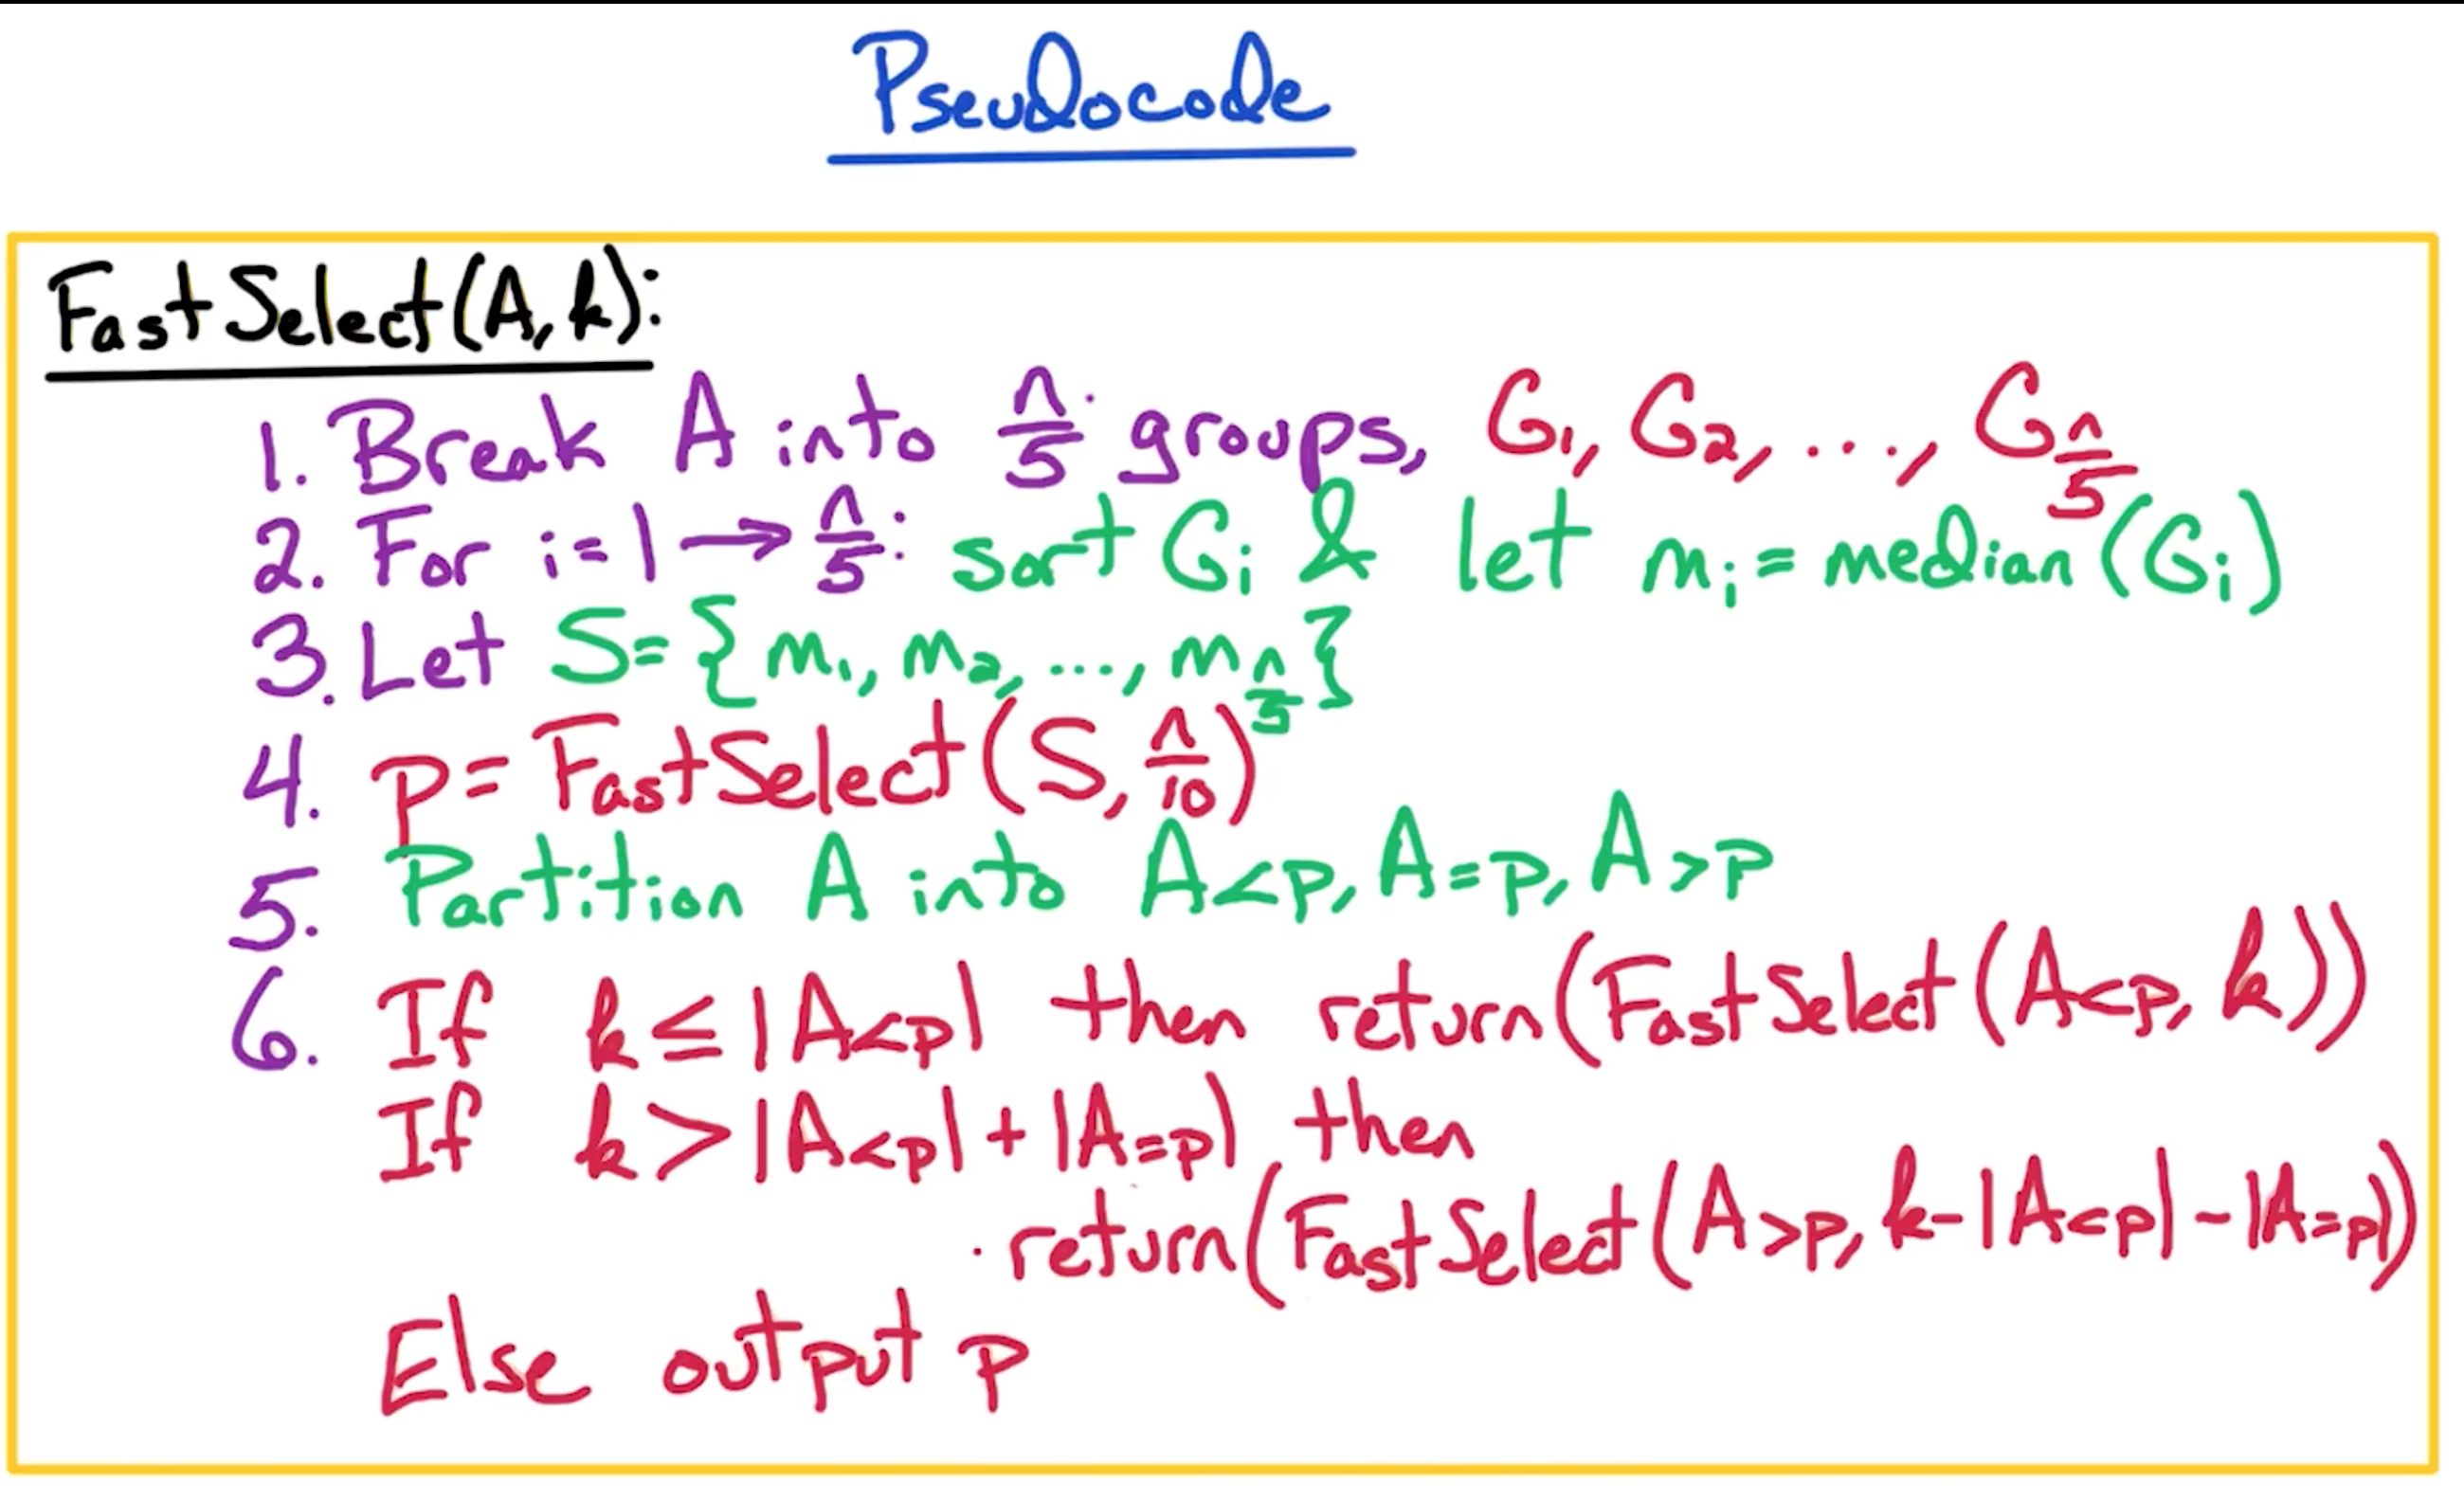 Pseudocode
FastSelect(A,k):
1. Break A into n/5 groups, G₁, G₂, ..., G_{n/5}
2. For i=1→n/5: sort Gᵢ & let mᵢ = median(Gᵢ)
3. Let S={m₁, m₂, ..., m_{n/5}}
4. p= FastSelect(S, n/10)
5. Partition A into A<p, A=p, A>p
6. If k ≤ |A<p| then return(FastSelect(A<p, k))
If k > |A<p| + |A=p| then
return(FastSelect(A>p, k-|A<p| - |A=p|))
Else output p